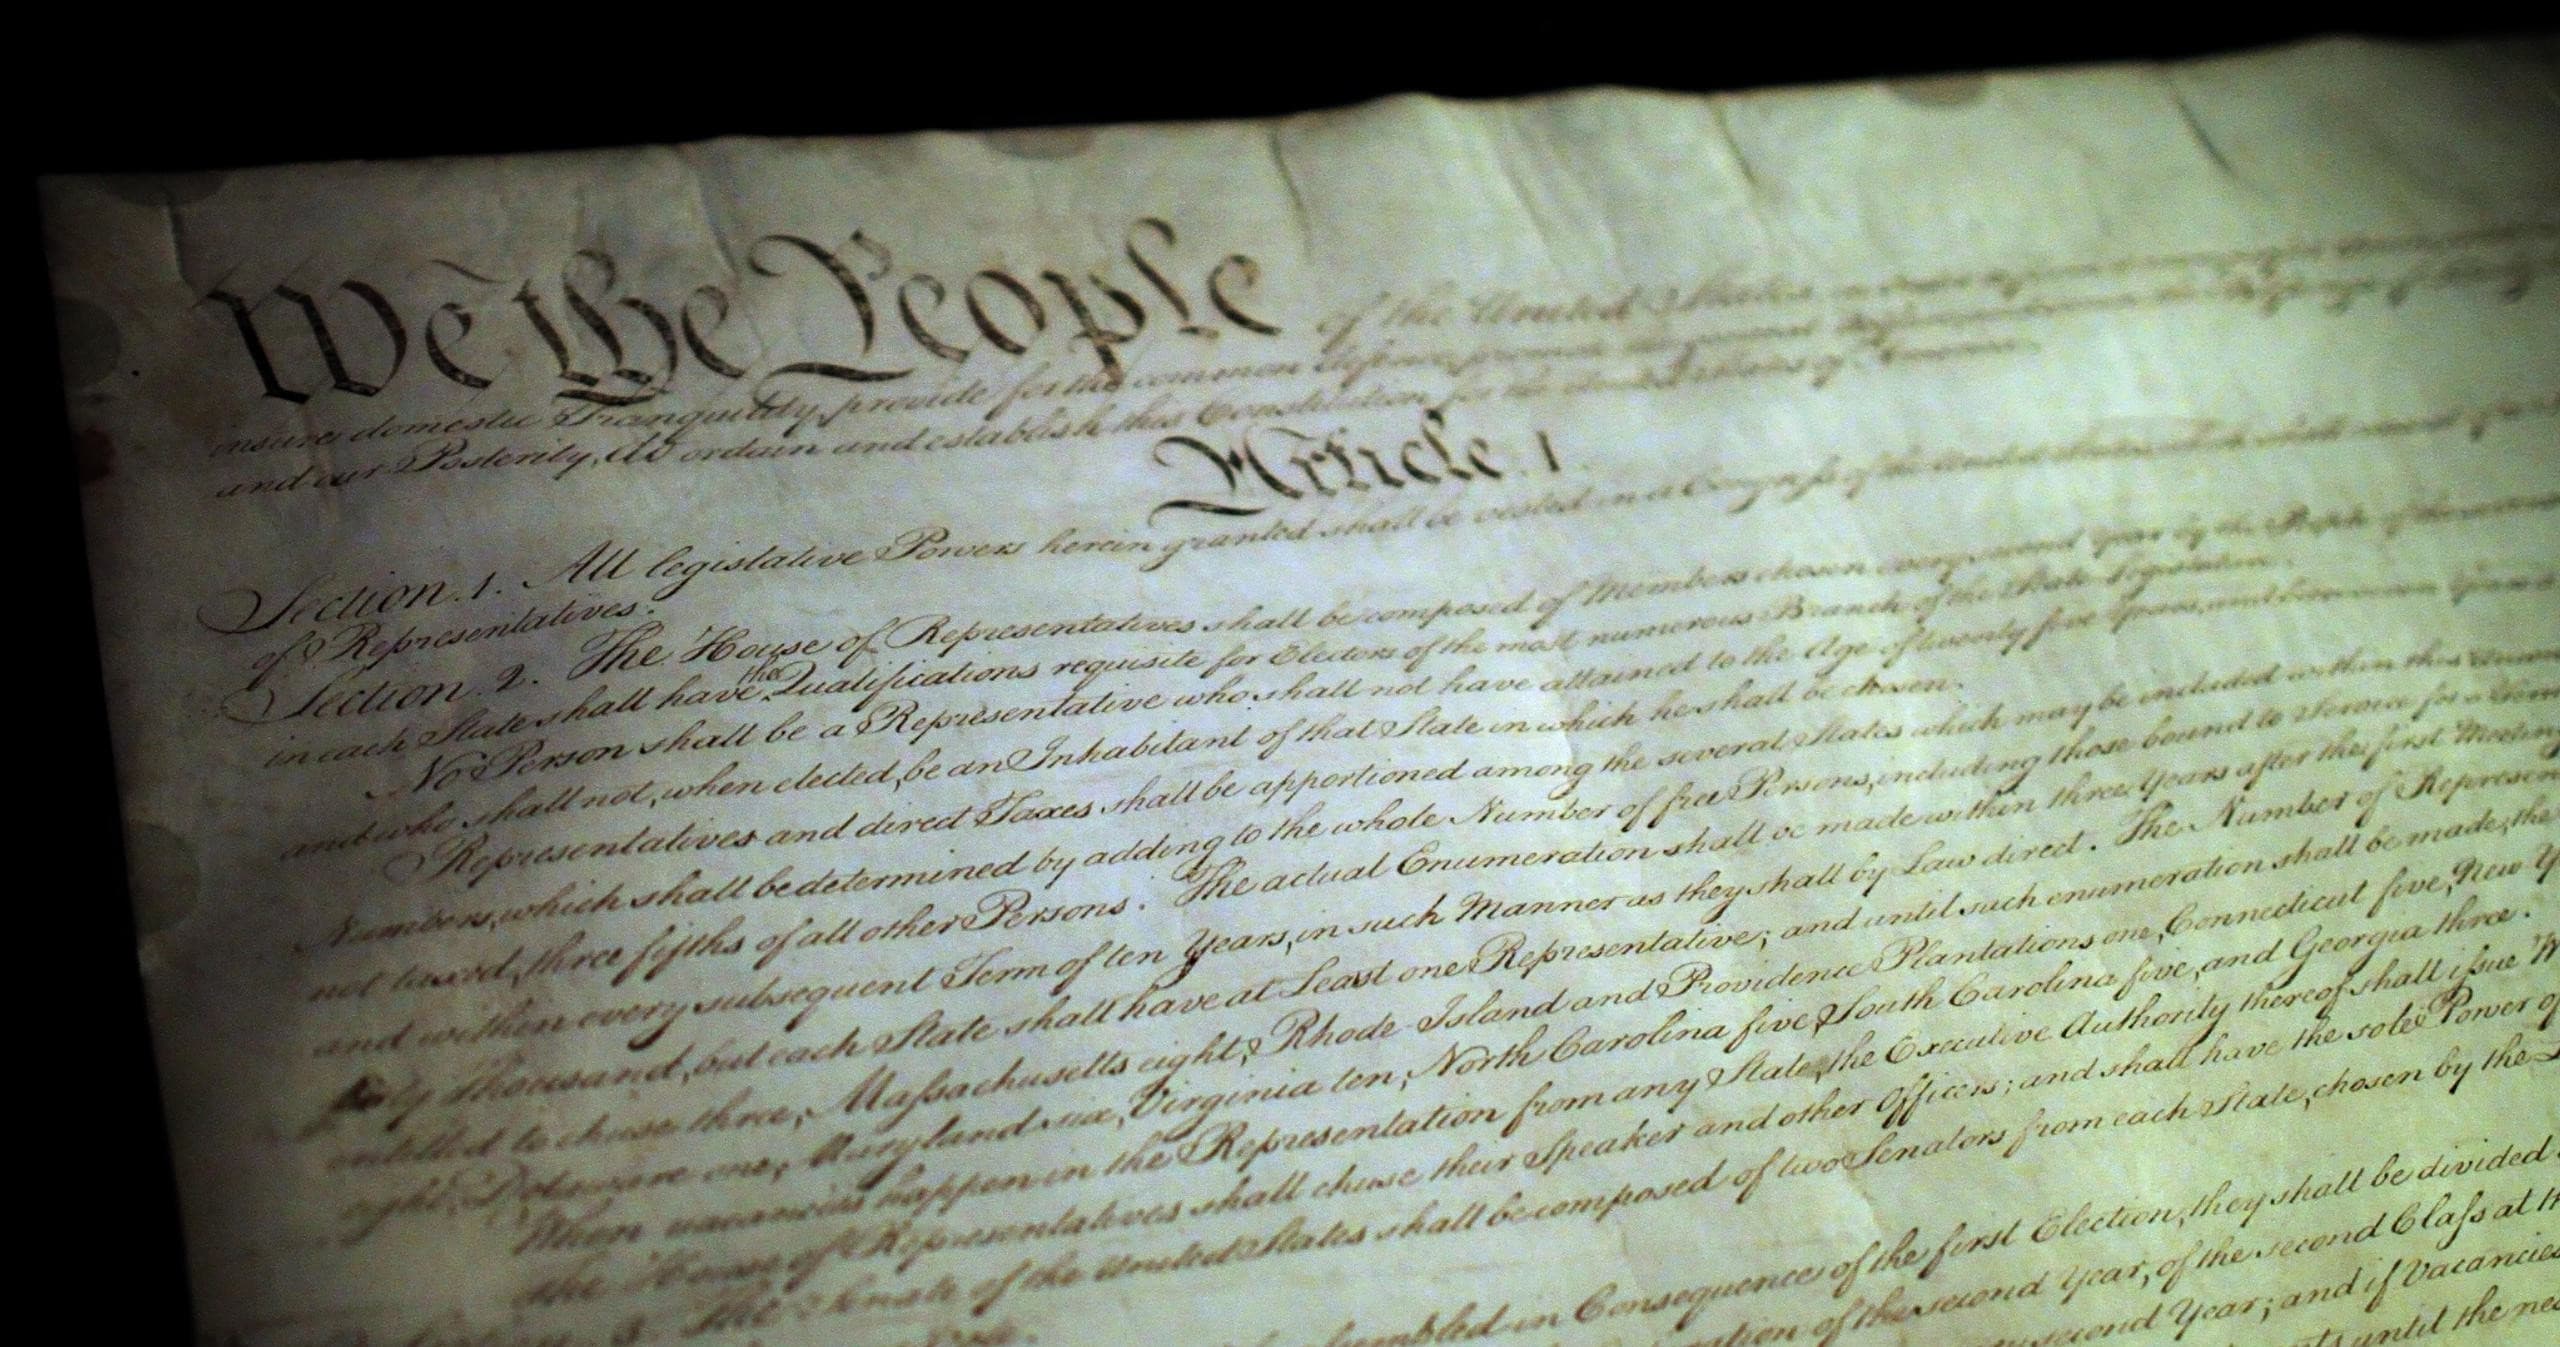 We the People of the United States
insure domestic Tranquility, provide for the common defence, promote the general
and our Posterity, do ordain and establish this Constitution for the United States of America.
Article. I.
Section. 1. All legislative Powers herein granted shall be vested in a Congress of the United States, which shall consist
of Representatives.
Section. 2. The House of Representatives shall be composed of Members chosen every second Year by the People of the several
in each State shall have the Qualifications requisite for Electors of the most numerous Branch of the State Legislature.
No Person shall be a Representative who shall not have attained to the Age of twenty five Years, and been seven Years
and who shall not, when elected, be an Inhabitant of that State in which he shall be chosen.
Representatives and direct Taxes shall be apportioned among the several States which may be included within this Union
Numbers, which shall be determined by adding to the whole Number of free Persons, including those bound to Service for a Term
not taxed, three fifths of all other Persons. The actual Enumeration shall be made within three Years after the first Meeting
and within every subsequent Term of ten Years, in such Manner as they shall by Law direct. The Number of Represen
thirty Thousand, but each State shall have at Least one Representative; and until such enumeration shall be made, the
entitled to chuse three, Massachusetts eight, Rhode-Island and Providence Plantations one, Connecticut five, New Y
eight, Delaware one, Maryland six, Virginia ten, North Carolina five, South Carolina five, and Georgia three.
When vacancies happen in the Representation from any State, the Executive Authority thereof shall issue W
the House of Representatives shall chuse their Speaker and other Officers; and shall have the sole Power of
Section. 3. The Senate of the United States shall be composed of two Senators from each State, chosen by the
Vote.
sembled in Consequence of the first Election, they shall be divided
ration of the second Year, of the second Class at th
second Year; and if Vacancies
until the nex